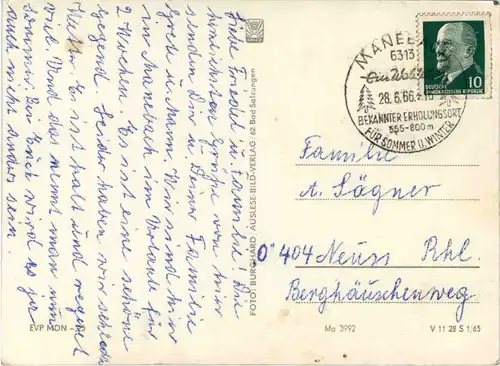 Liebe Friedel u. Familie! Die
herzlichsten Grüße von hier
senden Dir u. Deiner Familie
Wir sind hier
in Manebach im Urlaub für
2 Wochen. Es ist eine schöne
Gegend. Leider haben wir schlech
Wetter. Es ist kalt und regnet
viel. Und das nennt man nun
Sommer. Bei Euch wird es ja
auch nicht anders sein.
FOTO: BURGHARD: AUSLESE-BILD-VERLAG 62 Bad Salzungen
MANEB
6313
28.6.66
BEKANNTER ERHOLUNGSORT
555-800m
FÜR SOMMER U. WINTER
10
DEUTSCHE
DEMOKRATISCHE REPUBLIK
Familie
A. Sägner
404 Neuss Rhl.
Berghäuschenweg
EVP MDN
Ma 3992
V 11 28 S 1/65